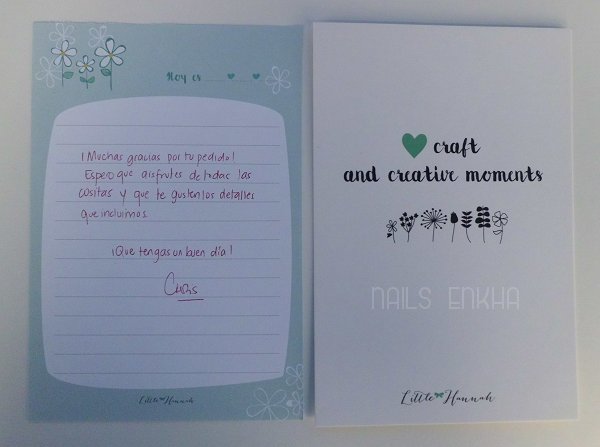 Hoy es
¡Muchas gracias por tu pedido!
Espero que disfrutes de todas las
cositas y que te gusten los detalles
que incluimos.
¡Que tengas un buen día!
Little Hannah
craft
and creative moments
NAILS ENKHA
Little Hannah